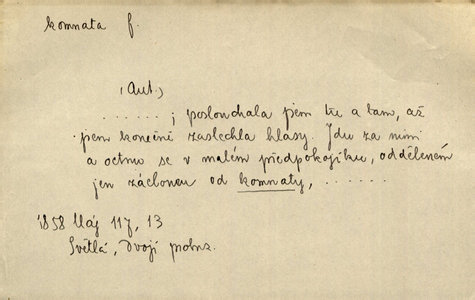 komnata f.
(Aut.)
. . . . . . ; poslouchala jsem tu a tam, až
jsem konečně zaslechla hlasy. Jdu za nimi
a octnu se v malém předpokojíku, odděleném
jen záclonou od komnaty, . . . . . . .
1858 Máj 117, 13
Světlá, Dvojí probuz.